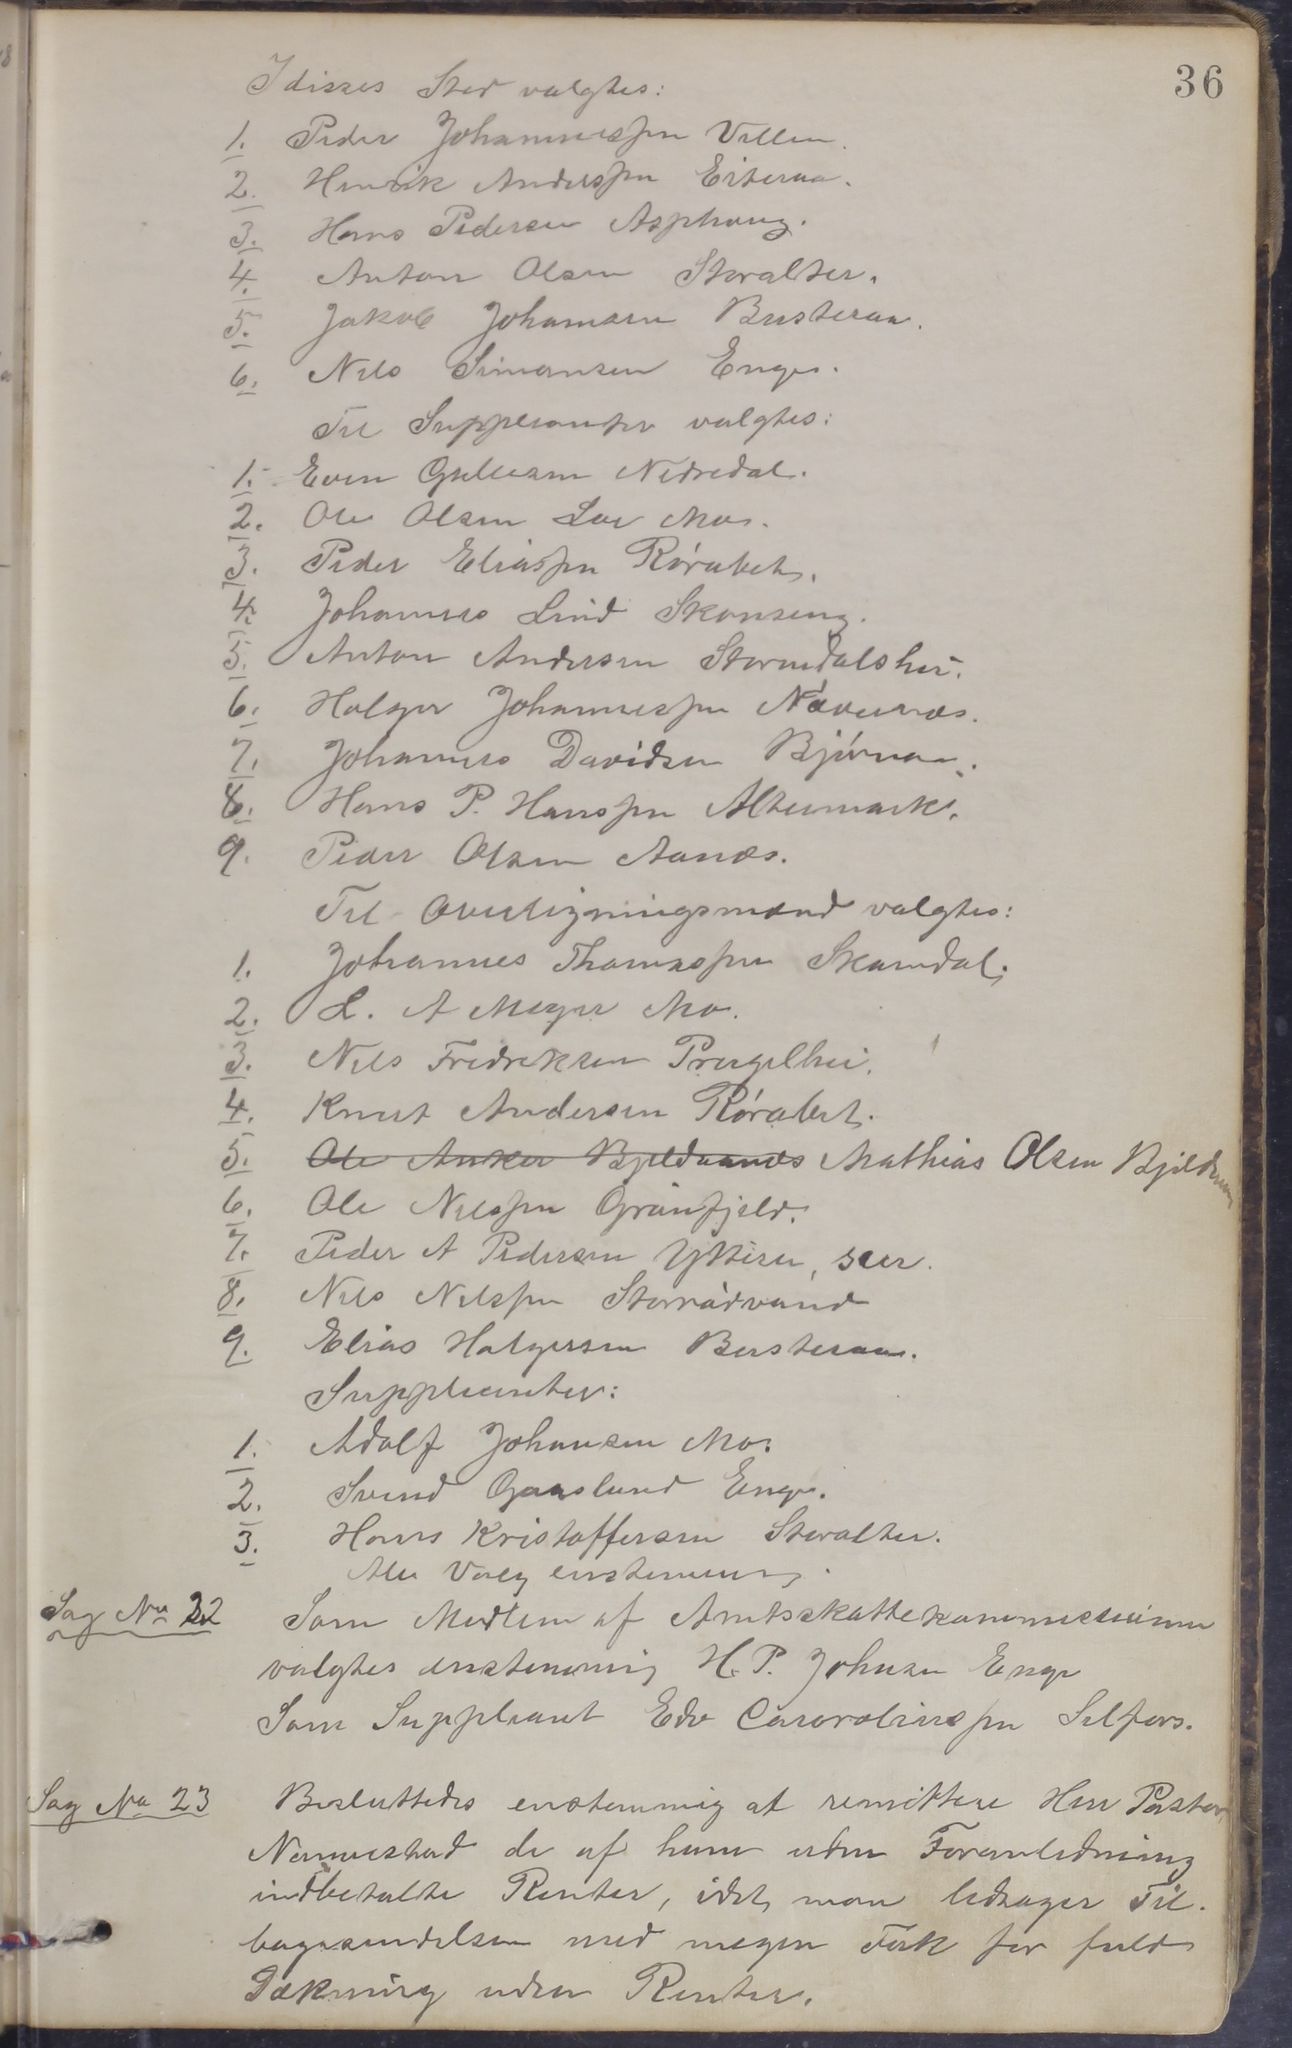 36
I disses Sted valgtes:
1. Peder Johannessen Villen.
2. Henrik Anderssen Eiteraa.
3. Hans Pedersen Asphaug.
4. Anton Olsen Storalter.
5. Jakob Johansen Busteraa.
6. Nils Simonsen Enge.
Til Suppleanter valgtes:
1. Even Gulesen Nedredal.
2. Ole Olsen Lae Mo.
3. Peder Eliassen Røvatn.
4. Johannes Lind Skonseng.
5. Anton Andersen Stormdalshei.
6. Holger Johannessen Nævernes.
7. Johannes Davidsen Bjørnaa.
8. Hans P. Hanssen Altermark.
9. Peder Olsen Aanes.
Til Overligningsmænd valgtes:
1. Johannes Thomassen Skamdal.
2. L. A Meyer Mo.
3. Nils Fredriksen Prægelhei.
4. Knut Andersen Røvatn.
5. Ole Anker Bjeldaanes Mathias Olsen
6. Ole Nilssen Grønfjeld.
7. Peder A Pedersen Ytteren, sen.
8. Nils Nilssen Storrødvand
9. Elias Holgersen Busteraa.
Suppleanter:
1. Adolf Johansen Mo.
2. Svend Gaaslund Enge.
3. Hans Kristoffersen Storalter.
Alle Valg enstemmig.
Sag No 22 Som Medlem af Amtsskattekommissionen
valgtes enstemmig H. P. Johnsen Enge
Som Suppleant Edv Carolinssen Selfors.
Sag No 23 Besluttedes enstemmig at remittere Herr Pastor
Nannestad de af ham uden Foranledning
indbetalte Renter, idet man ledsager Til-
bagesendelsen med megen Tak for fuld
Dækning uden Renter.